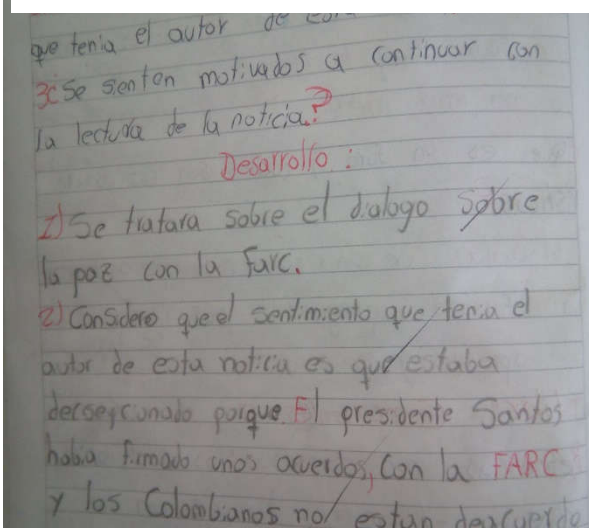 que tenia el autor de
3¿Se sienten motivados a continuar con
la lectura de la noticia?
Desarrollo:
1) Se tratara sobre el dialogo sobre
la paz con la Farc.
2) Considero que el sentimiento que tenia el
autor de esta noticia es que estaba
decsepcionado porque El presidente Santos
habia firmado unos acuerdos, con la FARC
y los Colombianos no estan descuerdo